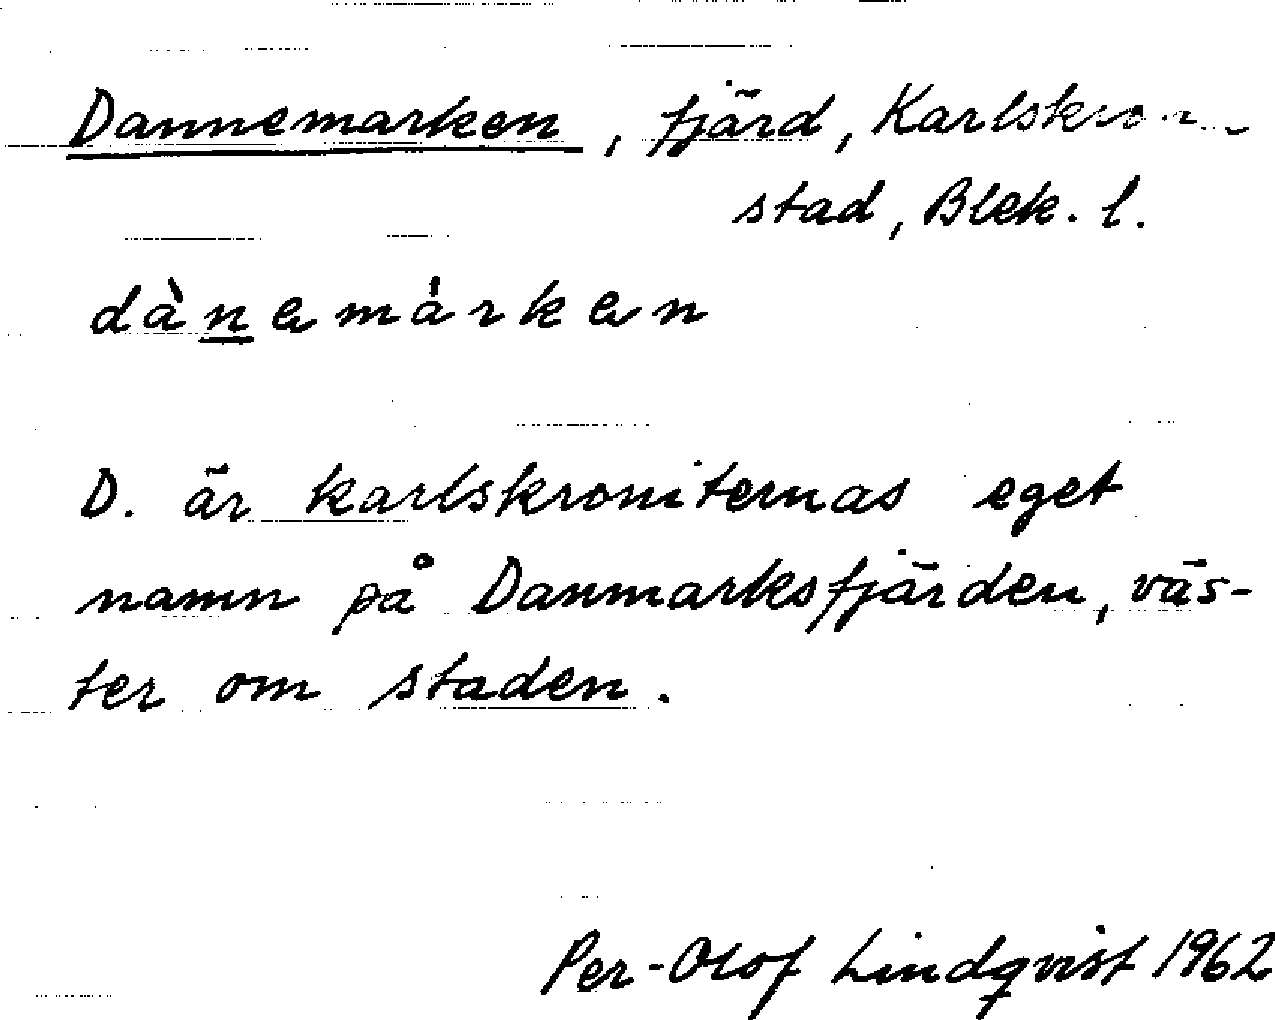 Dannemarken, fjärd, Karlskrona
stad, Blek. l.
dànemárken
D. är karlskroniternas eget
namn på Danmarksfjärden, väs-
ter om staden.
Per-Olof Lindqvist 1962